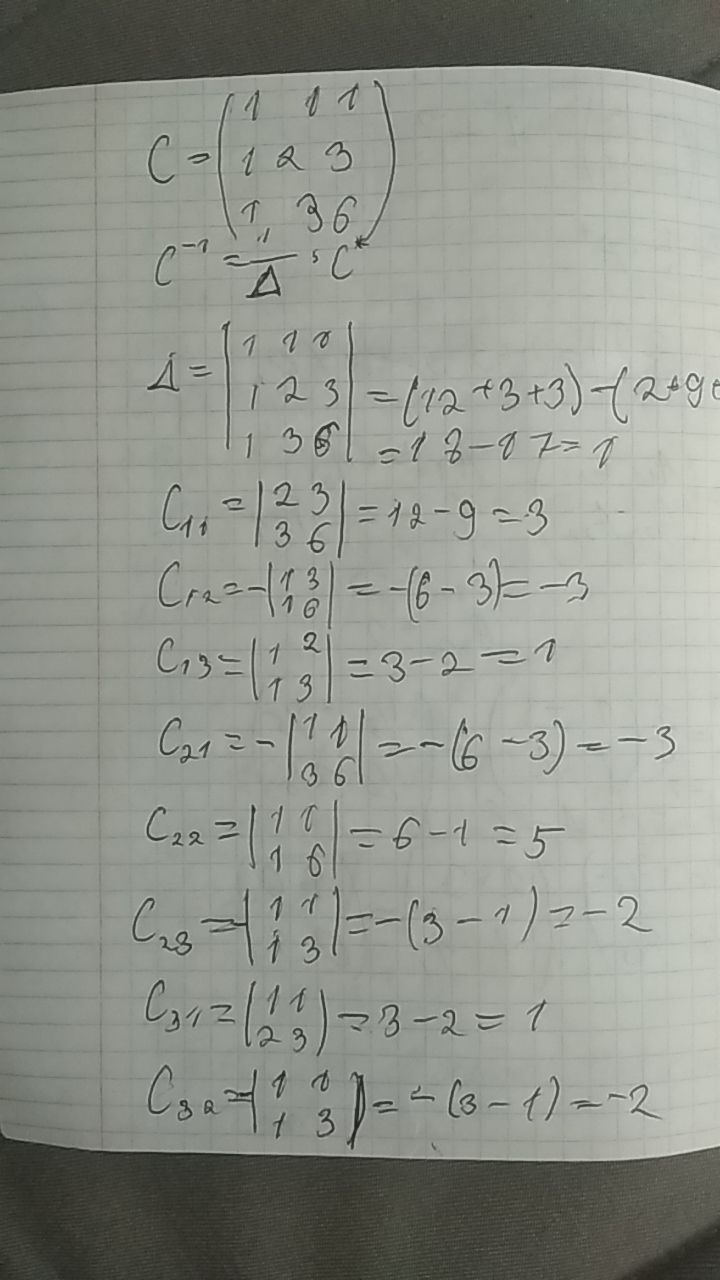 C = (1 1 1
1 2 3
1 3 6)
C⁻¹ = 1/Δ · C*
Δ = |1 1 1
1 2 3
1 3 6| = (12+3+3)-(2+9+
= 18-17=1
C₁₁ = |2 3
3 6| = 12-9=3
C₁₂ = -|1 3
1 6| = -(6-3)=-3
C₁₃ = |1 2
1 3| = 3-2=1
C₂₁ = -|1 1
3 6| = -(6-3)=-3
C₂₂ = |1 1
1 6| = 6-1=5
C₂₃ = -|1 1
1 3| = -(3-1)=-2
C₃₁ = (1 1
2 3) = 3-2=1
C₃₂ = -|1 1
1 3| = -(3-1)=-2